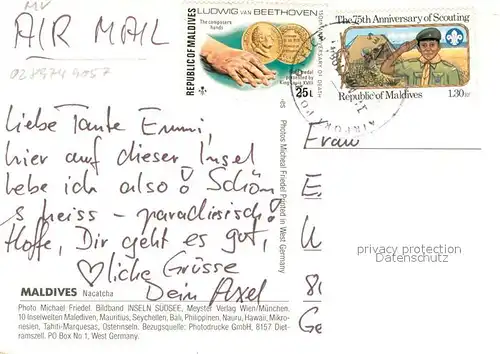 MV
AIR MAIL
LUDWIG VAN BEETHOVEN
The composers hands
REPUBLIC OF MALDIVES
150th ANNIVERSARY OF DEATH
Gold medal
presented by
King Louis XVIII
25L
The 75th Anniversary of Scouting
Republic of Maldives
1.30RF
Liebe Tante Emmi,
hier auf dieser Insel
lebe ich also! Schön
s heiss – paradiesisch!
Hoffe, Dir geht es gut,
♡liche Grüsse
Dein Axel
Frau
E
8
Ge
privacy protection
Datenschutz
Photos Micheal Friedel Printed in West Germany
MALDIVES Nacatcha
Photo Michael Friedel. Bildband INSELN SÜDSEE, Meyster Verlag Wien/München.
10 Inselwelten Malediven, Mauritius, Seychellen, Bali, Philippinen, Nauru, Hawaii, Mikro-
nesien, Tahiti-Marquesas, Osterinseln. Bezugsquelle: Photodrucke GmbH, 8157 Diet-
ramszell. PO Box No 1, West Germany.